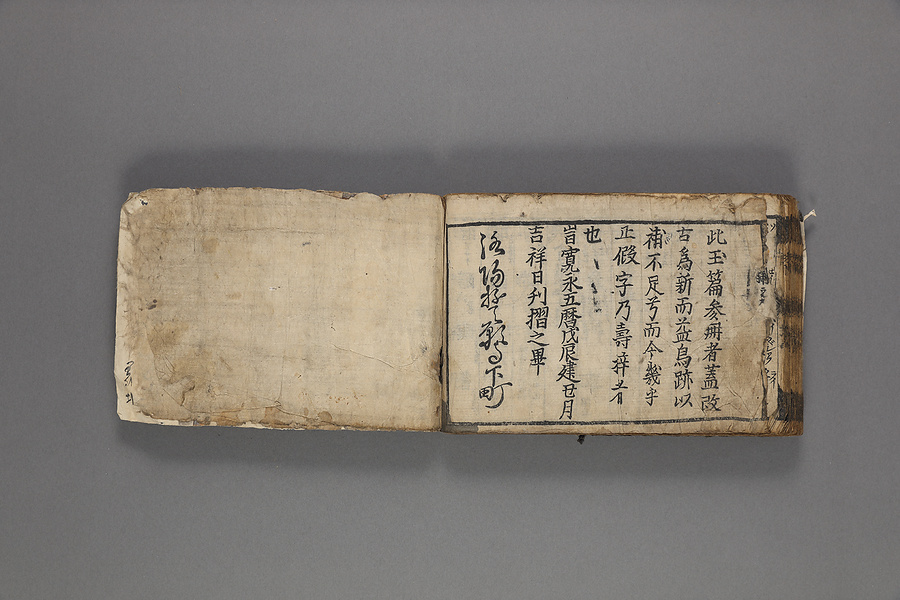 此玉篇参冊者蓋改
古爲新而益鳥跡以
補不足兮而今幾乎
正假字乃壽梓者
也
旹寛永五暦戊辰建丑月
吉祥日刋摺之畢
洛陽 下町